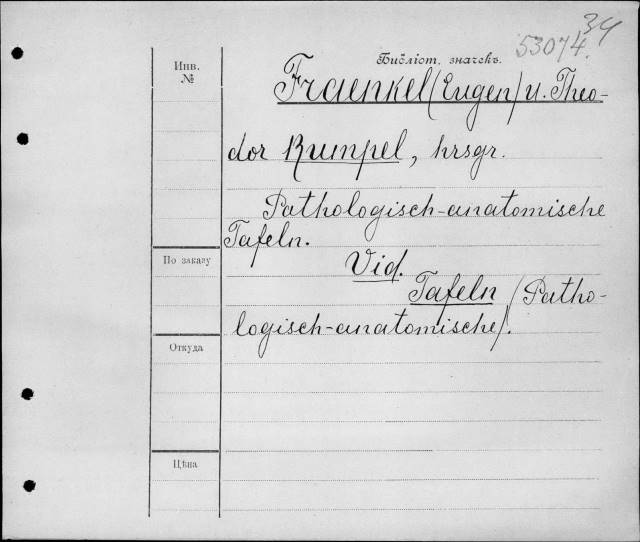 34
53074.
Инв.
№
Библіот. значекъ.
Fraenkel (Eugen) u. Theo-
dor Rumpel, hrsgr.
Pathologisch-anatomische
Tafeln.
По заказу
Vid.
Tafeln (Patho-
logisch-anatomische).
Откуда
Цѣна